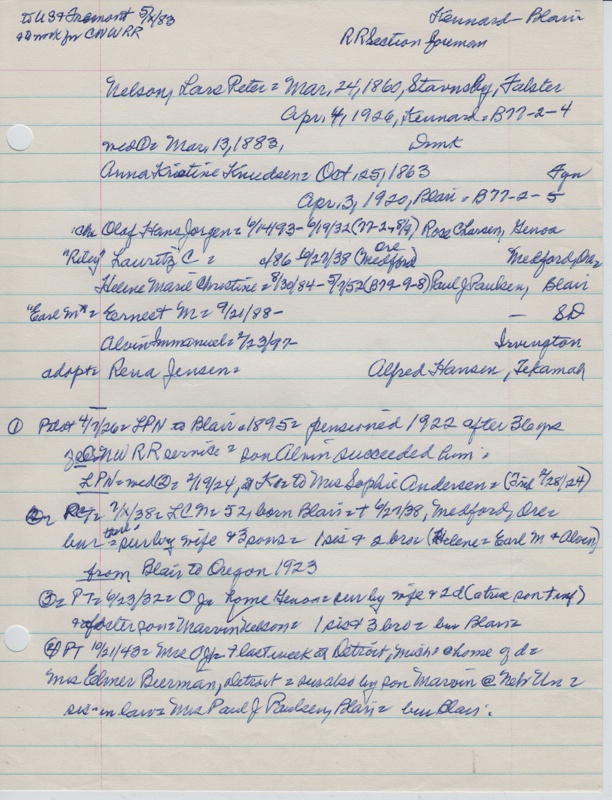 to USA Fremont 5/x/83 Kennard - Blair
& work for CNW RR RR Section foreman
Nelson, Lars Peter = Mar, 24, 1860, Stavnsby, Falster
Apr, 4, 1926, Kennard = B77-2-4
med① = Mar, 13, 1883, Dmk
Anna Kristine Knudsen = Oct, 25, 1863 Fyn
Apr, 3, 1920, Blair = B77-2-5
ch: Olaf Hans Jorgen = 6/14/93 - 6/19/32 (77-2-8/9) Rose Larsen, Genoa
"Riley" Lauritz C = c/86 6/27/38 (Medford Ore) Medford, Ore
Helene Marie Christine = 8/30/84 - 5/7/52 (B79-9-8) Paul J Paulsen, Blair
"Earl M" = Ernest M = 9/21/88 - — SD
Alvin Immanuel = 2/23/97 - Irvington
adopt = Rena Jensen = Alfred Hansen, Tekamah
① Pilot 4/7/26 = LPN to Blair = 1895 = pensioned 1922 after 36 yrs
CNW RR service = son Alvin succeeded him =
LPN = med② = 2/19/24, at K to Mrs Sophie Andersen = (2/28/24)
② = PT = 7/x/38 = LC N = 52, born Blair = + 6/27/38, Medford, Ore =
bur there = sur by wife & 3 sons = 1 sis & 2 bro (Helene = Earl M & Alvin)
from Blair to Oregon 1923
③ = PT = 6/23/32 = O J = home Genoa = sur by wife & 2 d
& foster son = Marvin Nelson = 1 sis & 3 bro = bur Blair =
④ PT 10/21/43 = Mrs O J = + last week at Detroit, Mich = home of d =
Mrs Elmer Bierman, Detroit = sur also by son Marvin @ Neb Un =
sis-in-law = Mrs Paul J Paulsen, Blair = bur Blair.